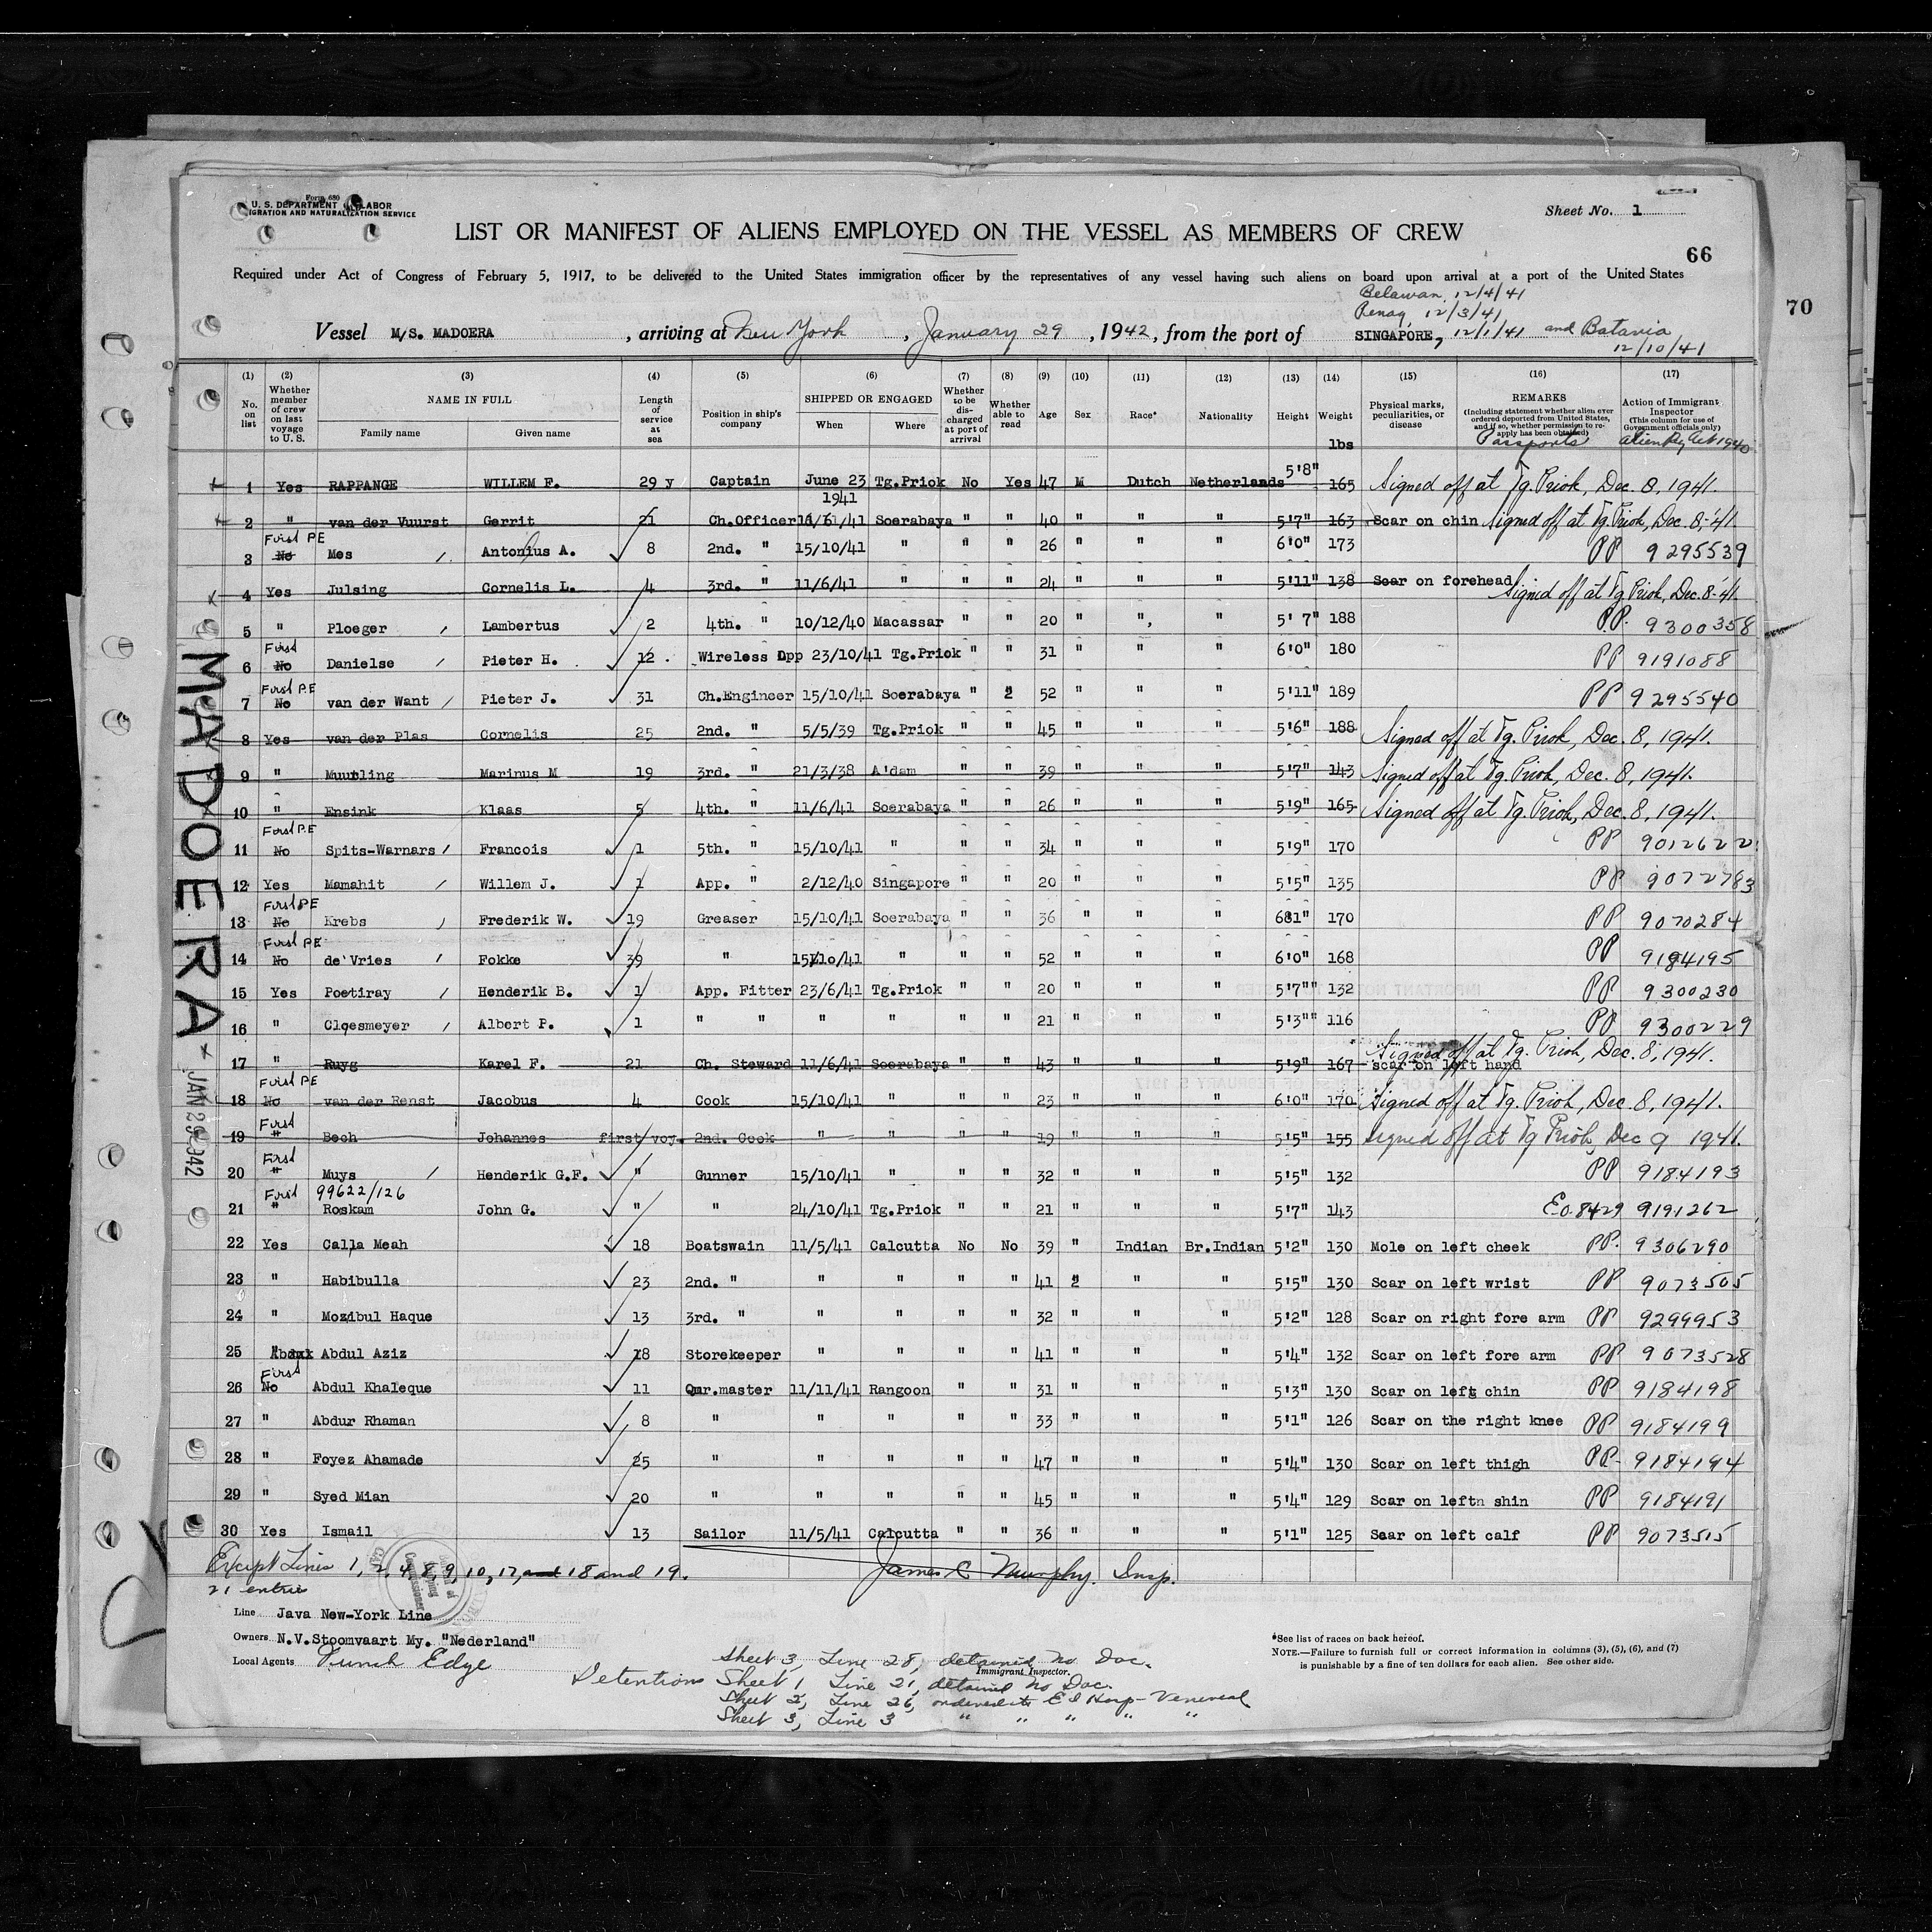 Form 680
U. S. DEPARTMENT OF LABOR
IGRATION AND NATURALIZATION SERVICE
Sheet No. 1
LIST OR MANIFEST OF ALIENS EMPLOYED ON THE VESSEL AS MEMBERS OF CREW
66
70
Required under Act of Congress of February 5, 1917, to be delivered to the United States immigration officer by the representatives of any vessel having such aliens on board upon arrival at a port of the United States
Belawan 12/4/41
Penag 12/3/41
Vessel M/S. MADOERA, arriving at New York, January 29, 1942, from the port of SINGAPORE, 12/1/41 and Batavia
12/10/41
(1) (2) (3) (4) (5) (6) (7) (8) (9) (10) (11) (12) (13) (14) (15) (16) (17)
No. on list
Whether member of crew on last voyage to U. S.
NAME IN FULL
Family name
Given name
Length of service at sea
Position in ship's company
SHIPPED OR ENGAGED
When
Where
Whether to be discharged at port of arrival
Whether able to read
Age
Sex
Race*
Nationality
Height
Weight
lbs
Physical marks, peculiarities, or disease
REMARKS
(Including statement whether alien ever ordered deported from United States, and if so, whether permission to reapply has been obtained)
Passports
Action of Immigrant Inspector
(This column for use of Government officials only)
Alien Reg Act 1940
1 Yes RAPPANGE WILLEM F. 29 y Captain June 23 1941 Tg.Priok No Yes 47 M Dutch Netherlands 5'8" 165 Signed off at Tg. Priok, Dec. 8, 1941.
2 " van der Vuurst Gerrit 21 Ch.Officer 11/6/41 Soerabaya " " 40 " " " 5'7" 163 Scar on chin Signed off at Tg. Priok, Dec. 8,-'41.
First PE
3 No Mes Antonius A. 8 2nd. " 15/10/41 " " " 26 " " " 6'0" 173 PP 9295539
4 Yes Julsing Cornelis L. 4 3rd. " 11/6/41 " " " 24 " " " 5'11" 138 Scar on forehead Signed off at Tg Priok, Dec. 8-'41.
5 " Ploeger Lambertus 2 4th. " 10/12/40 Macassar " " 20 " " " 5' 7" 188 P.P. 9300358
First
6 No Danielse Pieter H. 12 Wireless Opp 23/10/41 Tg.Priok " " 31 " " " 6'0" 180 PP 9191088
First P.E
7 No van der Want Pieter J. 31 Ch.Engineer 15/10/41 Soerabaya " " 52 " " " 5'11" 189 PP 9295540
8 Yes van der Plas Cornelis 25 2nd. " 5/5/39 Tg.Priok " " 45 " " " 5'6" 188 Signed off at Tg. Priok, Dec. 8, 1941.
9 " Muurling Marinus M 19 3rd. " 21/3/38 A'dam " " 39 " " " 5'7" 143 Signed off at Tg. Priok, Dec. 8, 1941.
10 " Ensink Klaas 5 4th. " 11/6/41 Soerabaya " " 26 " " " 5'9" 165 Signed off at Tg. Priok, Dec. 8, 1941.
First P.E
11 No Spits-Warnars Francois 1 5th. " 15/10/41 " " " 34 " " " 5'9" 170 PP 9012622
12 Yes Mamahit Willem J. 1 App. " 2/12/40 Singapore " " 20 " " " 5'5" 135 PP 9072783
First PE
13 No Krebs Frederik W. 19 Greaser 15/10/41 Soerabaya " " 36 " " " 6'1" 170 PP 9070284
First PE
14 No de Vries Fokke 39 " 15/10/41 " " " 52 " " " 6'0" 168 PP 9184195
15 Yes Poetiray Henderik B. 1 App. Fitter 23/6/41 Tg.Priok " " 20 " " " 5'7"" 132 PP 9300230
16 " Cloesmeyer Albert P. 1 " " " " " " 21 " " " 5'3"" 116 PP 9300229
17 " Ruyg Karel F. 21 Ch. Steward 11/6/41 Soerabaya " " 43 " " " 5'9" 167 scar on left hand Signed off at Tg. Priok, Dec. 8, 1941.
First PE
18 No van der Renst Jacobus 4 Cook 15/10/41 " " " 23 " " " 6'0" 170 Signed off at Tg. Priok, Dec. 8, 1941.
First
19 " Bech Johannes first voy. 2nd. Cook " " " " 19 " " " 5'5" 155 Signed off at Tg Priok, Dec 9 1941.
First
20 " Muys Henderik G.F. " Gunner 15/10/41 " " " 32 " " " 5'5" 132 PP 9184193
First 99622/126
21 " Roskam John G. " " 24/10/41 Tg.Priok " " 21 " " " 5'7" 143 E.O. 8429 9191262
22 Yes Calla Meah 18 Boatswain 11/5/41 Calcutta No No 39 " Indian Br.Indian 5'2" 130 Mole on left cheek PP. 9306290
23 " Habibulla 23 2nd. " " " " " 41 " " " 5'5" 130 Scar on left wrist PP 9073505
24 " Mozibul Haque 13 3rd. " " " " " 32 " " " 5'2" 128 Scar on right fore arm PP 9299953
25 " Abdul Aziz 18 Storekeeper " " " " 41 " " " 5'4" 132 Scar on left fore arm PP 9073528
First
26 No Abdul Khaleque 11 Qur.master 11/11/41 Rangoon " " 31 " " " 5'3" 130 Scar on left chin PP 9184198
27 " Abdur Rhaman 8 " " " " " 33 " " " 5'1" 126 Scar on the right knee PP 9184199
28 " Foyez Ahamade 25 " " " " " 47 " " " 5'4" 130 Scar on left thigh PP- 9184194
29 " Syed Mian 20 " " " " " 45 " " " 5'4" 129 Scar on leftn shin PP 9184191
30 Yes Ismail 13 Sailor 11/5/41 Calcutta " " 36 " " " 5'1" 125 Scar on left calf PP 9073515
Except Lines 1, 2, 4, 8, 9, 10, 17, and 18 and 19.
21 entries
James C Murphy. Insp.
Line Java New-York Line
Owners N.V.Stoomvaart My. "Nederland"
Local Agents Funch Edye
Immigrant Inspector.
Sheet 3, Line 28, detained no Doc.
Detentions Sheet 1, Line 21, detained no Doc.
Sheet 2, Line 26, ordered to E I Hosp-Venereal
Sheet 3, Line 3 " " " " "
*See list of races on back hereof.
NOTE.—Failure to furnish full or correct information in columns (3), (5), (6), and (7)
is punishable by a fine of ten dollars for each alien. See other side.
MADOERA
JAN 29 1942